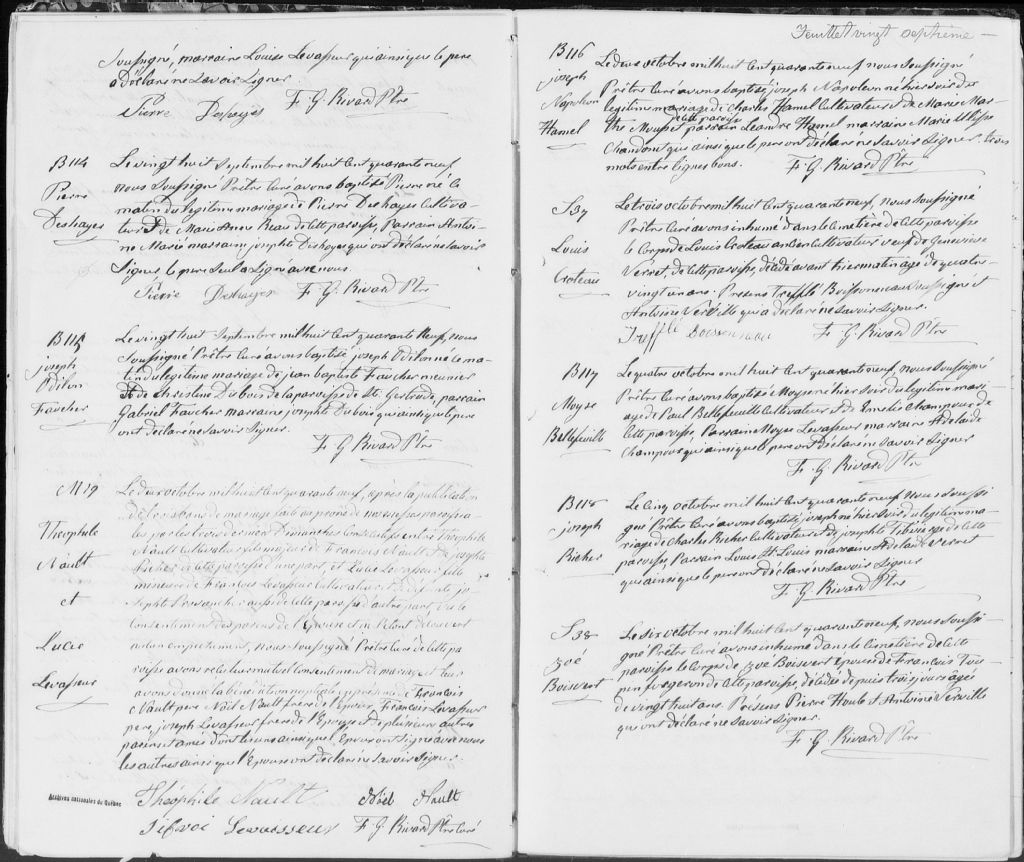 Soussigné, marraine Louise Levasseur qui ainsi que le pere
a déclaré ne savoir signer.
Pierre Deshayes F. G. Rivard Ptre
B114
Pierre
Deshayes
Le vingt huit Septembre mil huit cent quarante neuf,
nous Soussigné Prêtre Curé avons baptisé Pierre né le
matin du legitime mariage de Pierre Deshayes Cultiva-
teur & de Marie Anne Reau de cette paroisse, Parrain Antoi-
ne Marié marraine josephte Deshayes qui ont déclaré ne savoir
Signer, le pere Seul a Signé avec nous.
Pierre Deshayes F. G. Rivard Ptre
B115
joseph
Odilon
Faucher
Le vingt huit Septembre mil huit cent quarante neuf, nous
Soussigné Prêtre Curé avons baptisé joseph Odilon né le ma-
tin du legitime mariage de jean baptiste Faucher meunier
& de Christine Dubois de la paroisse de Ste. Gertrude, parrain
Gabriel Faucher marraine josephte Dubois qui ainsi que le pere
ont déclaré ne savoir signer.
F. G. Rivard Ptre
M19
Théophile
Nault
et
Lucie
Levasseur
Le deux octobre mil huit cent quarante neuf, après la publication
de trois bans de mariage faite au prône de nos messes paroissia-
les par les trois derniers Dimanches Consécutifs entre Théophile
Nault Cultivateur fils majeur de François Nault & de josephte
Richer de cette paroisse d'une part, et Lucie Levasseur fille
mineure de François Levasseur Cultivateur & de défunte jo-
sephte Provancher aussi de cette paroisse d'autre part, vu le
Consentement des parens de l'Epouse et ne s'étant découvert
aucun empêchement, nous Soussigné Prêtre Curé de cette pa-
roisse avons reçu leur mutuel Consentement de mariage et leur
avons donné la bénédiction nuptiale en présence de François
Nault pere Noël Nault frere de l'Epoux, François Levasseur
pere, joseph Levasseur frere de l'Epouse et de plusieurs autres
parens et amis dont deux ainsi que l'Epoux ont Signé avec nous
les autres ainsi que l'Epouse ont déclaré ne savoir Signer.
Théophile Nault Noël Nault
F. G. Rivard Ptre Curé
Archives nationales du Québec
Feuillet vingt septième —
B116
joseph
Napoleon
Hamel
Le deux octobre mil huit cent quarante neuf nous Soussigné
Prêtre Curé avons baptisé joseph Napoleon né hier soir du
legitime mariage de Charles Hamel Cultivateur & de Marie Mar-
the Mousset de cette paroisse parrain Leandre Hamel marraine Marie Ulysse
Chandonet qui ainsi que le pere ont déclaré ne savoir Signer. trois
mots entre lignes bons. F. G. Rivard Ptre
S37
Louis
Croteau
Le trois octobre mil huit cent quarante neuf, nous Soussigné
Prêtre Curé avons inhumé dans le Cimetière de cette paroisse
le Corps de Louis Croteau ancien Cultivateur veuf de Genevieve
Verret, de cette paroisse, décédé avant hier matin agé de quatre-
vingt un ans. Présens Trefflé Boissonneau Soussigné et
Antoine Verville qui a déclaré ne savoir Signer.
Treffle Boissonneau F. G. Rivard Ptre
B117
Moyse
Bellefeuille
Le quatre octobre mil huit cent quarante neuf, nous Soussigné
Prêtre Curé avons baptisé Moyse né hier soir du legitime mari-
age de Paul Bellefeuille Cultivateur & de Emelie Champoux de
cette paroisse, Parrain Moyse Levasseur marraine Adelaide
Champoux qui ainsi que le pere ont déclaré ne savoir Signer
F. G. Rivard Ptre
B118
joseph
Richer
Le Cinq octobre mil huit cent quarante neuf, nous Soussi-
gné Prêtre Curé avons baptisé joseph né hier soir du legitime ma-
riage de Charles Richer Cultivateur & de josephte Tibierge de cette
paroisse, Parrain Louis St. Louis marraine Adelaide Verret
qui ainsi que le pere ont déclaré ne savoir Signer
F. G. Rivard Ptre
S38
Zoé
Boisvert
Le six octobre mil huit cent quarante neuf, nous Soussi-
gné Prêtre Curé avons inhumé dans le Cimetière de cette
paroisse le Corps de Zoé Boisvert Epouse de François Tou-
pin forgeron de cette paroisse, décédée depuis trois jours âgée
de vingt huit ans. Présens Pierre Houle et Antoine Verville
qui ont déclaré ne savoir Signer.
F. G. Rivard Ptre